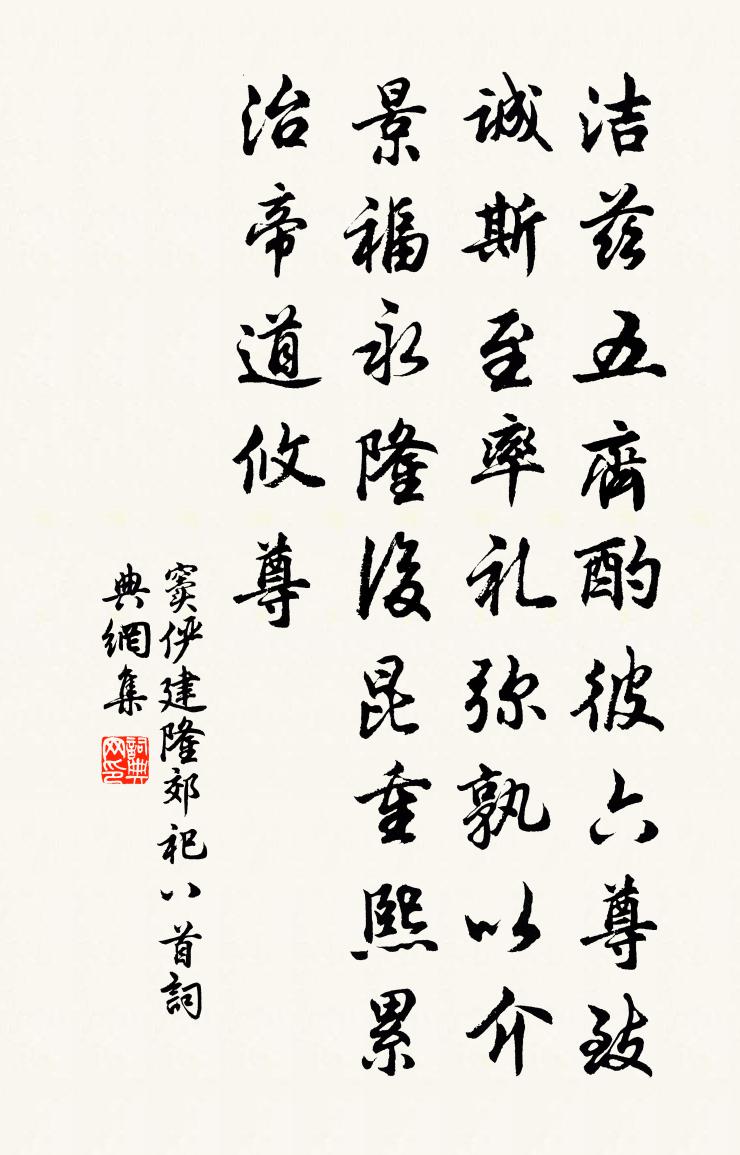 洁兹五齊酌彼六尊致
诚斯至率礼弥孰以介
景福永隆後昆重熙累
治帝道攸尊
窦俨建隆郊祀八首詞
典網集
詞典网印